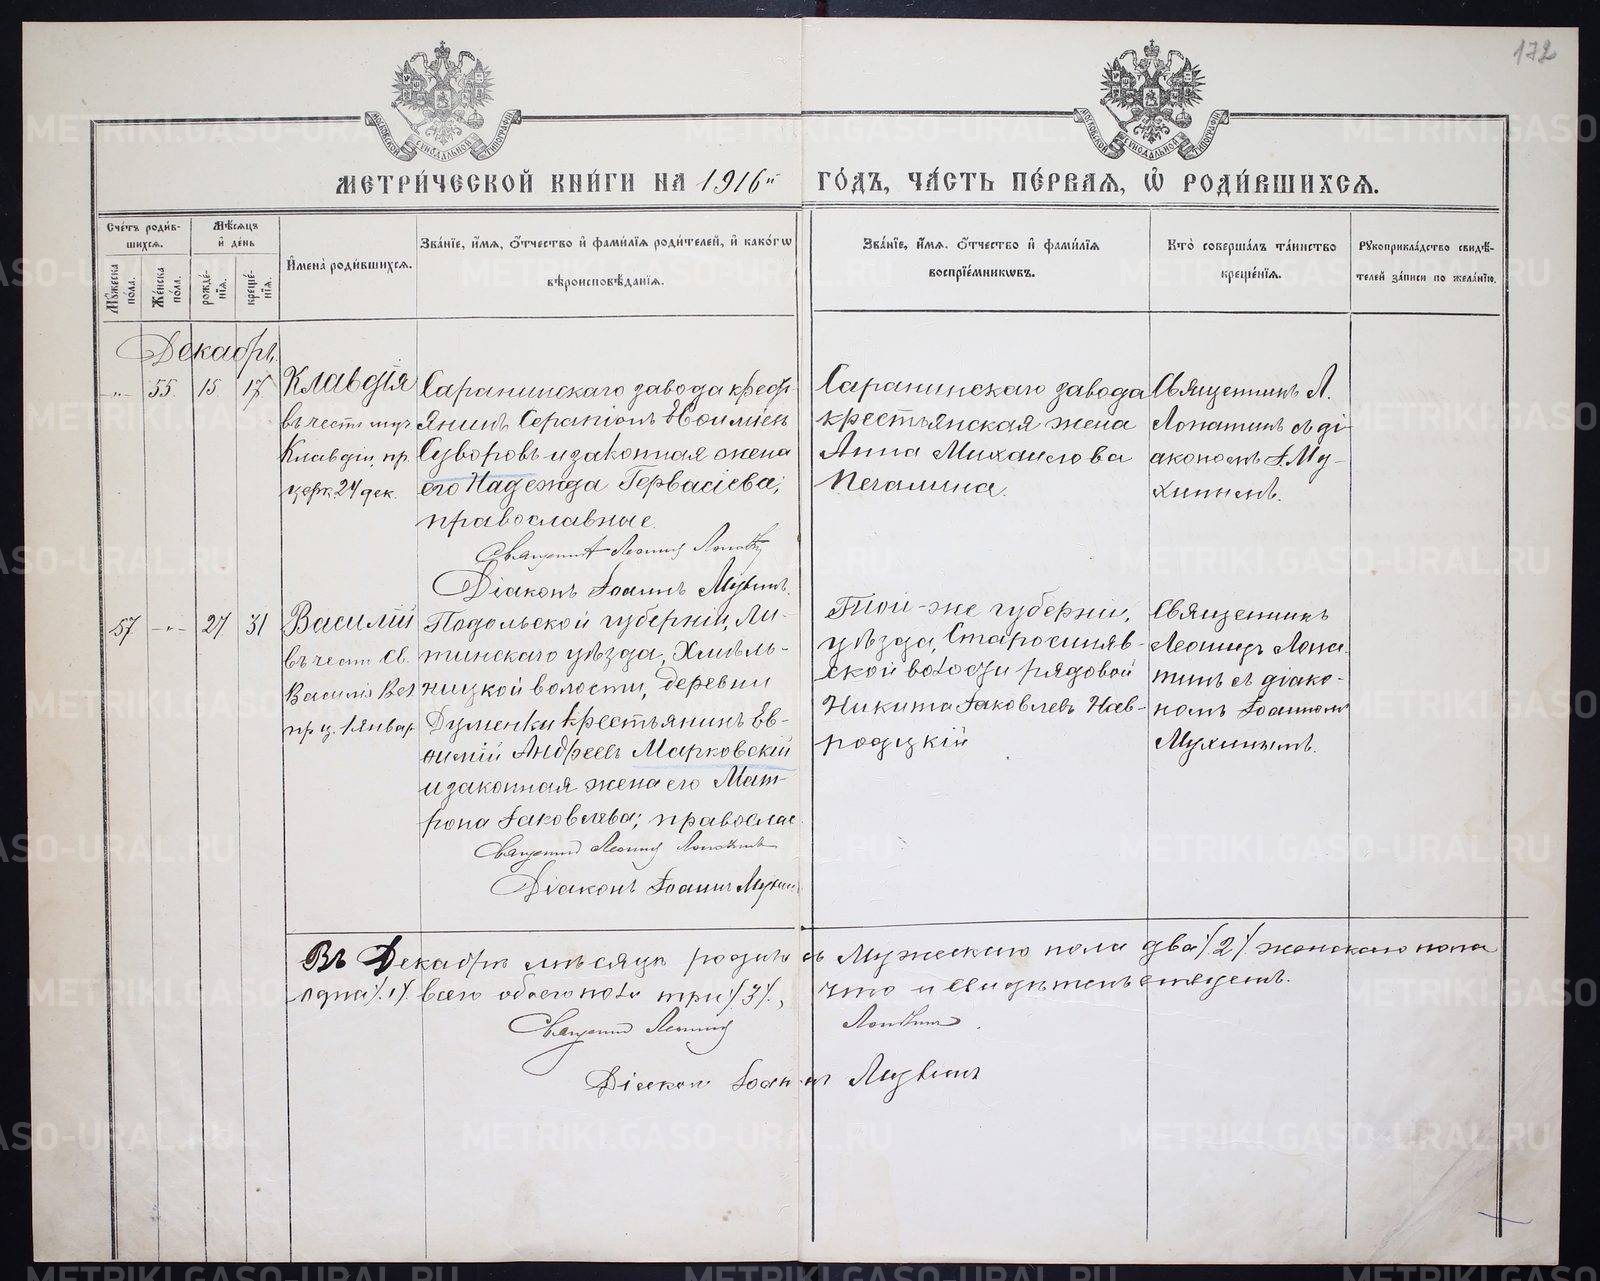 172
МОСКОВСКОЙ СѴНОДАЛЬНОЙ ТИПОГРАФІИ
МОСКОВСКОЙ СѴНОДАЛЬНОЙ ТИПОГРАФІИ
МЕТРИ́ЧЕСКОЙ КНИ́ГИ НА 1916й ГО́ДЪ, ЧА́СТЬ ПЕ́РВАЯ, Ѡ҆ РОДИ́ВШИХСЯ.
Сче́тъ роди́вшихся.
Мꙋ́жеска по́ла.
Же́нска по́ла.
Мѣ́сяцъ и҆ де́нь
рожде́нїя.
креще́нїя.
И҆мена̀ роди́вшихся.
Зва́нїе, и҆́мя, ѻ҆́тчество и҆ фами́лїя роди́телей, и҆ како́гѡ
вѣроисповѣ́данїя.
Зва́нїе, и҆́мя, ѻ҆́тчество и҆ фами́лїя
воспрїе́мникѡвъ.
Кто̀ соверша́лъ та́инство
креще́нїя.
Рꙋкоприкла́дство свидѣ́-
телей за́писи по жела́нїю.
Декабрь.
-„- 55. 15 17
Клавдія
въ честь муч
Клавдіи, пр.
церк. 24 дек.
Саранинскаго завода крест-
янинъ Серапіонъ
Суворовъ и законная жена
его Надежда Гервасіева;
православные.
Священникъ Леонидъ
Діаконъ Іоаннъ Мухинъ.
Саранинскаго завода
крестьянская жена
Анна Михаилова
Печалина.
Священникъ Л.
Лопатинъ съ ді-
акономъ І. Му-
хинымъ.
57. -„- 27 31
Василій
въ честь Св.
Василія Вел
пр ц. 1 Январ
Подольской губерніи, Ли-
тинскаго уѣзда, Хмѣль-
ницкой волости, деревни
Думенки крестьянинъ Ев-
ѳимій Андреевъ Марковскій
и законная жена его Мат-
рона Іаковлева; православ
Священникъ Леонидъ Лопатинъ
Діаконъ Іоаннъ Мухинъ
Той-же губерніи,
уѣзда, Старосиняв-
ской волости рядовой
Никита Іаковлевъ Нав-
родцкій
Священникъ
Леонидъ Лопа-
тинъ съ діако-
номъ Іоанномъ
Мухинымъ.
Въ Декабрѣ мѣсяцѣ родилось Мужескаго пола два /2/ женскаго пола
одна /1/ всего обоего пола три /3/, что и свидѣтельствуемъ.
Священникъ Леонидъ Лопатинъ.
Діаконъ Іоаннъ Мухинъ
METRIKI.GASO-URAL.RU